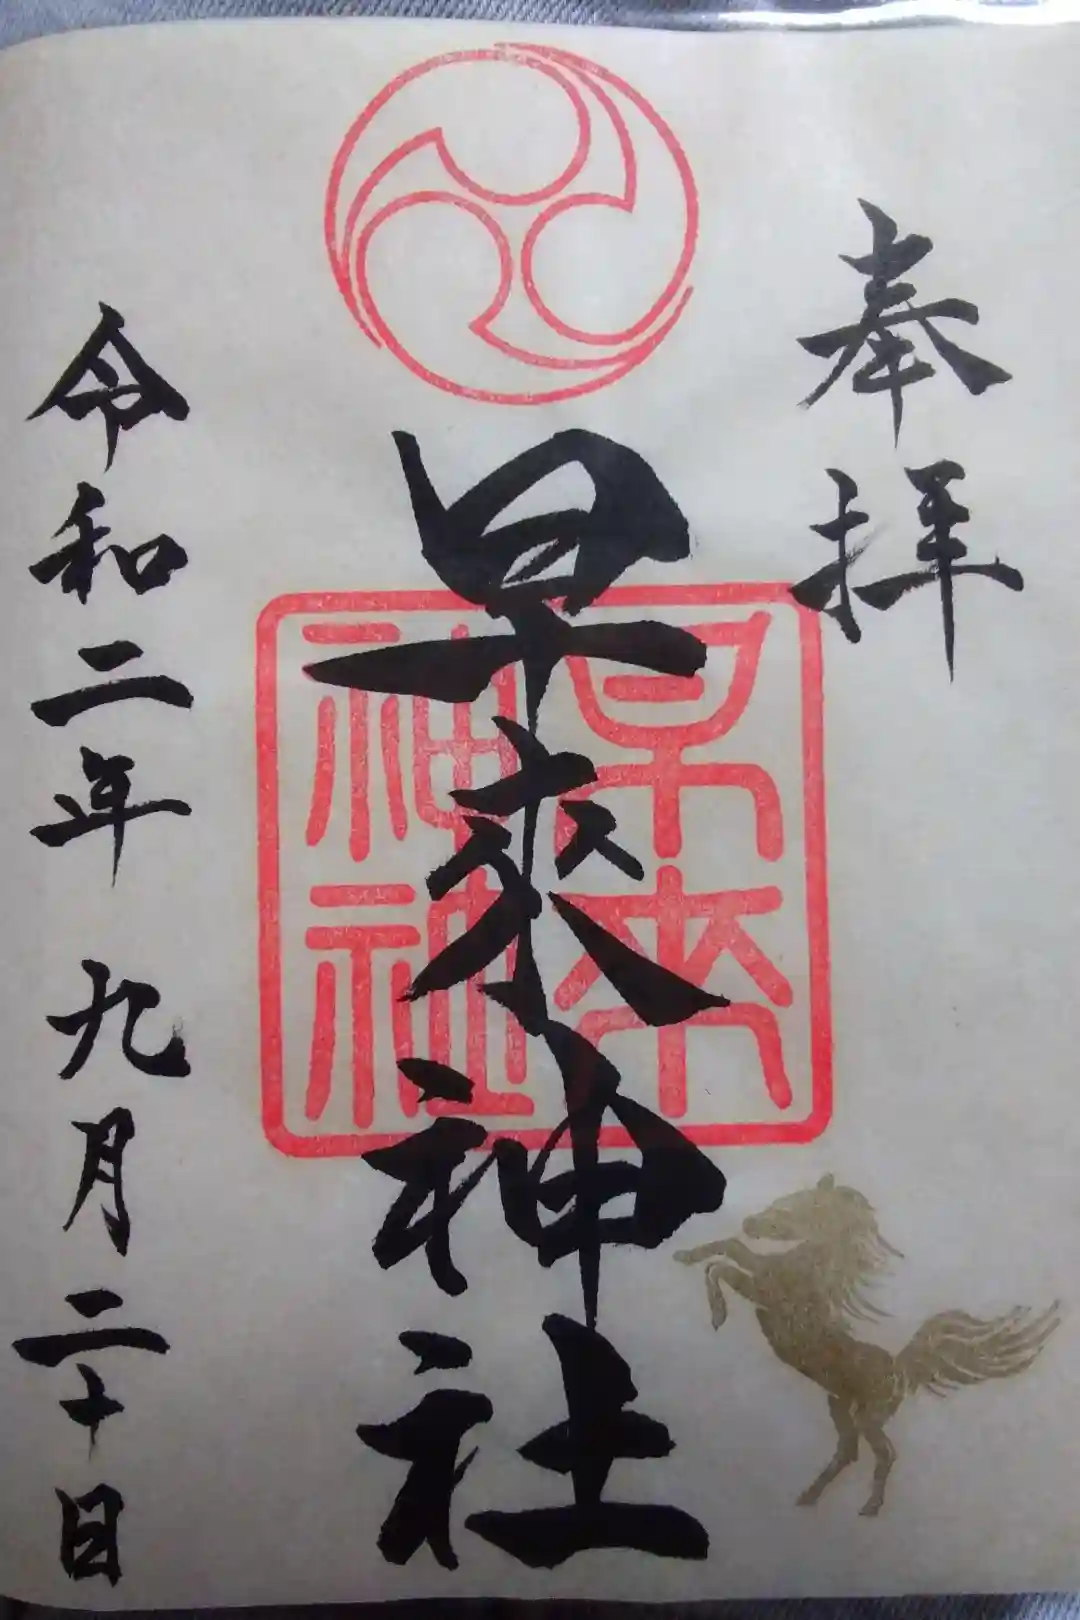 奉拝
早来神社
早来
神社
令和二年 九月二十日